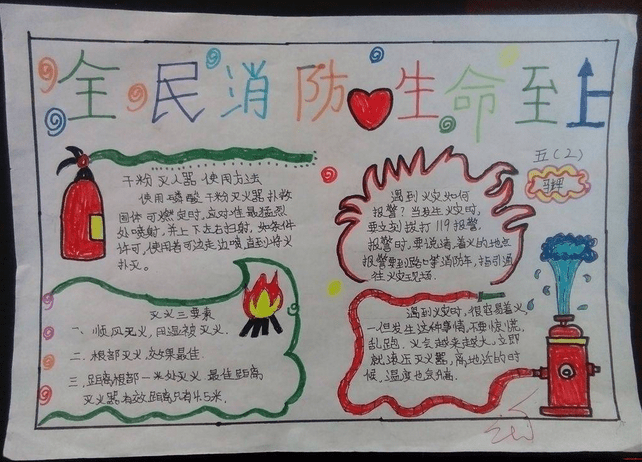 全民消防生命至上
五(2)
干粉灭火器使用方法
使用磷酸干粉灭火器扑救
固体可燃定时,应对准最猛烈
处喷射,并上下左右扫射,如条件
许可,使用者可边走边喷,直到将火
扑灭。
灭火三要素
一、顺风灭火,
二、根部灭火,效果最佳.
三、距离根部一米处灭火 最佳距离
灭火器有效距离只有4.5米.
遇到火灾如何
报警?当发生火灾时,
要立刻拨打119报警.
报警时,要说清着火的地点
报警要到路口等消防车,指引通
往火灾现场.
遇到火灾时,很容易着火,
一但发生这种事情,不要惊慌,
乱跑.火会越来越大,立即
就液压灭火器,离地近的时
候,温度也会